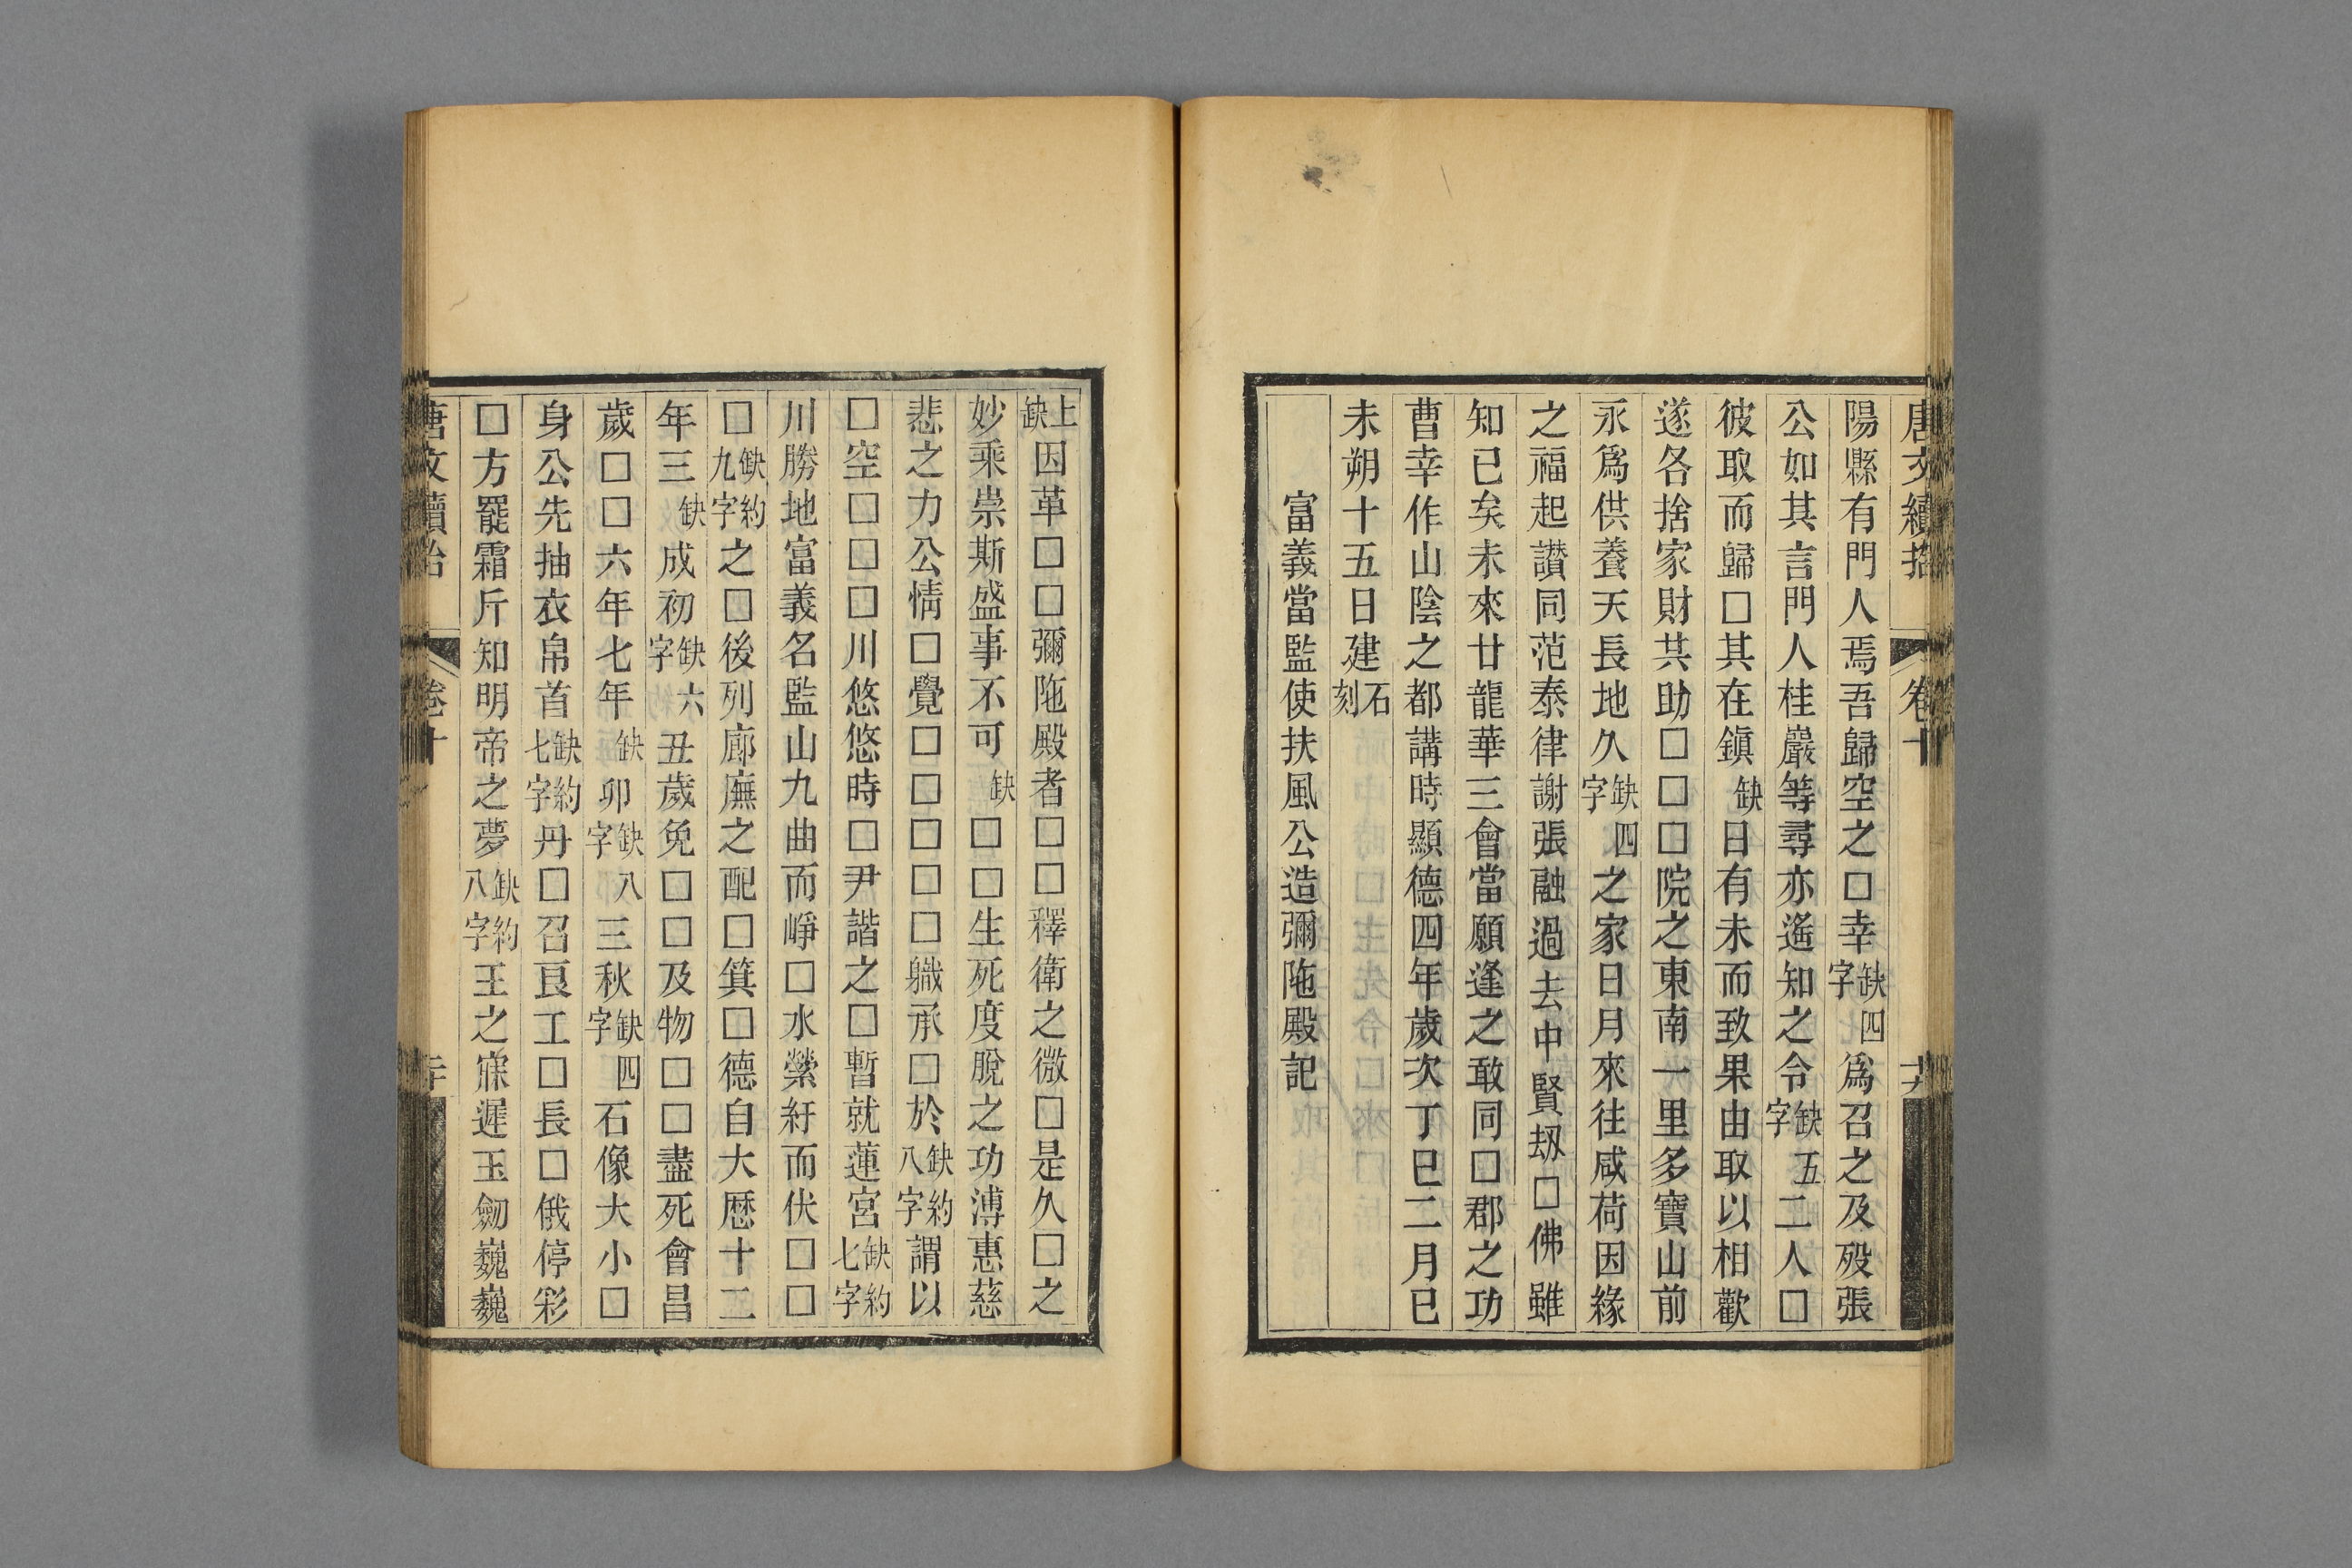 唐文續拾 卷十 十九
陽縣有門人焉吾歸空之□幸缺四字爲召之及歿張
公如其言門人桂巖等尋亦遙知之令缺五字二人□
彼取而歸□其在鎮缺日有未而致果由取以相歡
遂各捨家財共助□□□院之東南一里多寶山前
永爲供養天長地久缺四字之家日月來往咸荷因緣
之福起讃同范泰律謝張融過去中賢刼□佛雖
知已矣未來廿龍華三會當願逢之敢同□郡之功
曹幸作山陰之都講時顯德四年歲次丁巳二月已
未朔十五日建石刻
富義當監使扶風公造彌陁殿記
上缺因革□□彌陁殿者□□釋衛之微□是久□之
妙乘祟斯盛事不可缺□□生死度脫之功溥惠慈
悲之力公情□覺□□□□□軄承□於缺約八字謂以
□空□□□川悠悠時□尹諧之□暫就蓮宮缺約七字
川勝地富義名監山九曲而崢□水縈紆而伏□□
□缺約九字之□後列廊廡之配□箕□德自大歷十二
年三缺成初缺六字丑歲免□□及物□□盡死會昌
歲□□六年七年缺卯缺八字三秋缺四字石像大小□
身公先抽衣帛首缺約七字丹□召良工□長□俄停彩
□方罷霜斤知明帝之夢缺約八字王之寐遲玉劒巍巍
唐文續拾 卷十 二十